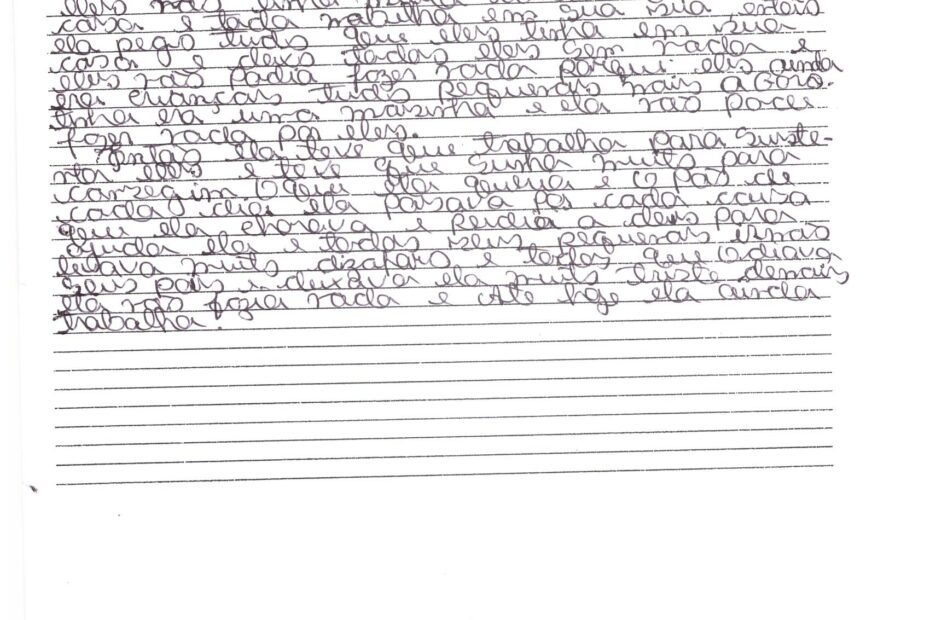 eles não tinha
casa e toda mobilha em sua sua então
ela pego tudo que eles tinha em sua
casa e deixo todos eles sem nada e
eles não podia fazer nada porqui elis ainda
era crianças tudo pequenas mais a Goro-
tinha era uma mosinha e ela não
fazer nada por eles.
Então ela teve que trabalha para suste-
nta eles e teve que sunha muito para
conzegim o que ela queria e o pão de
cada dia ela pasava por cada couza
que ela chorava e pердia a deus para
ajuda ela e todos seus pequenos irmão
levava muito dizaforo e todos que odiava
seus pais e deixava ela muito triste demais
ela não fazia nada e Ate hoje ela ainda
trabalha.